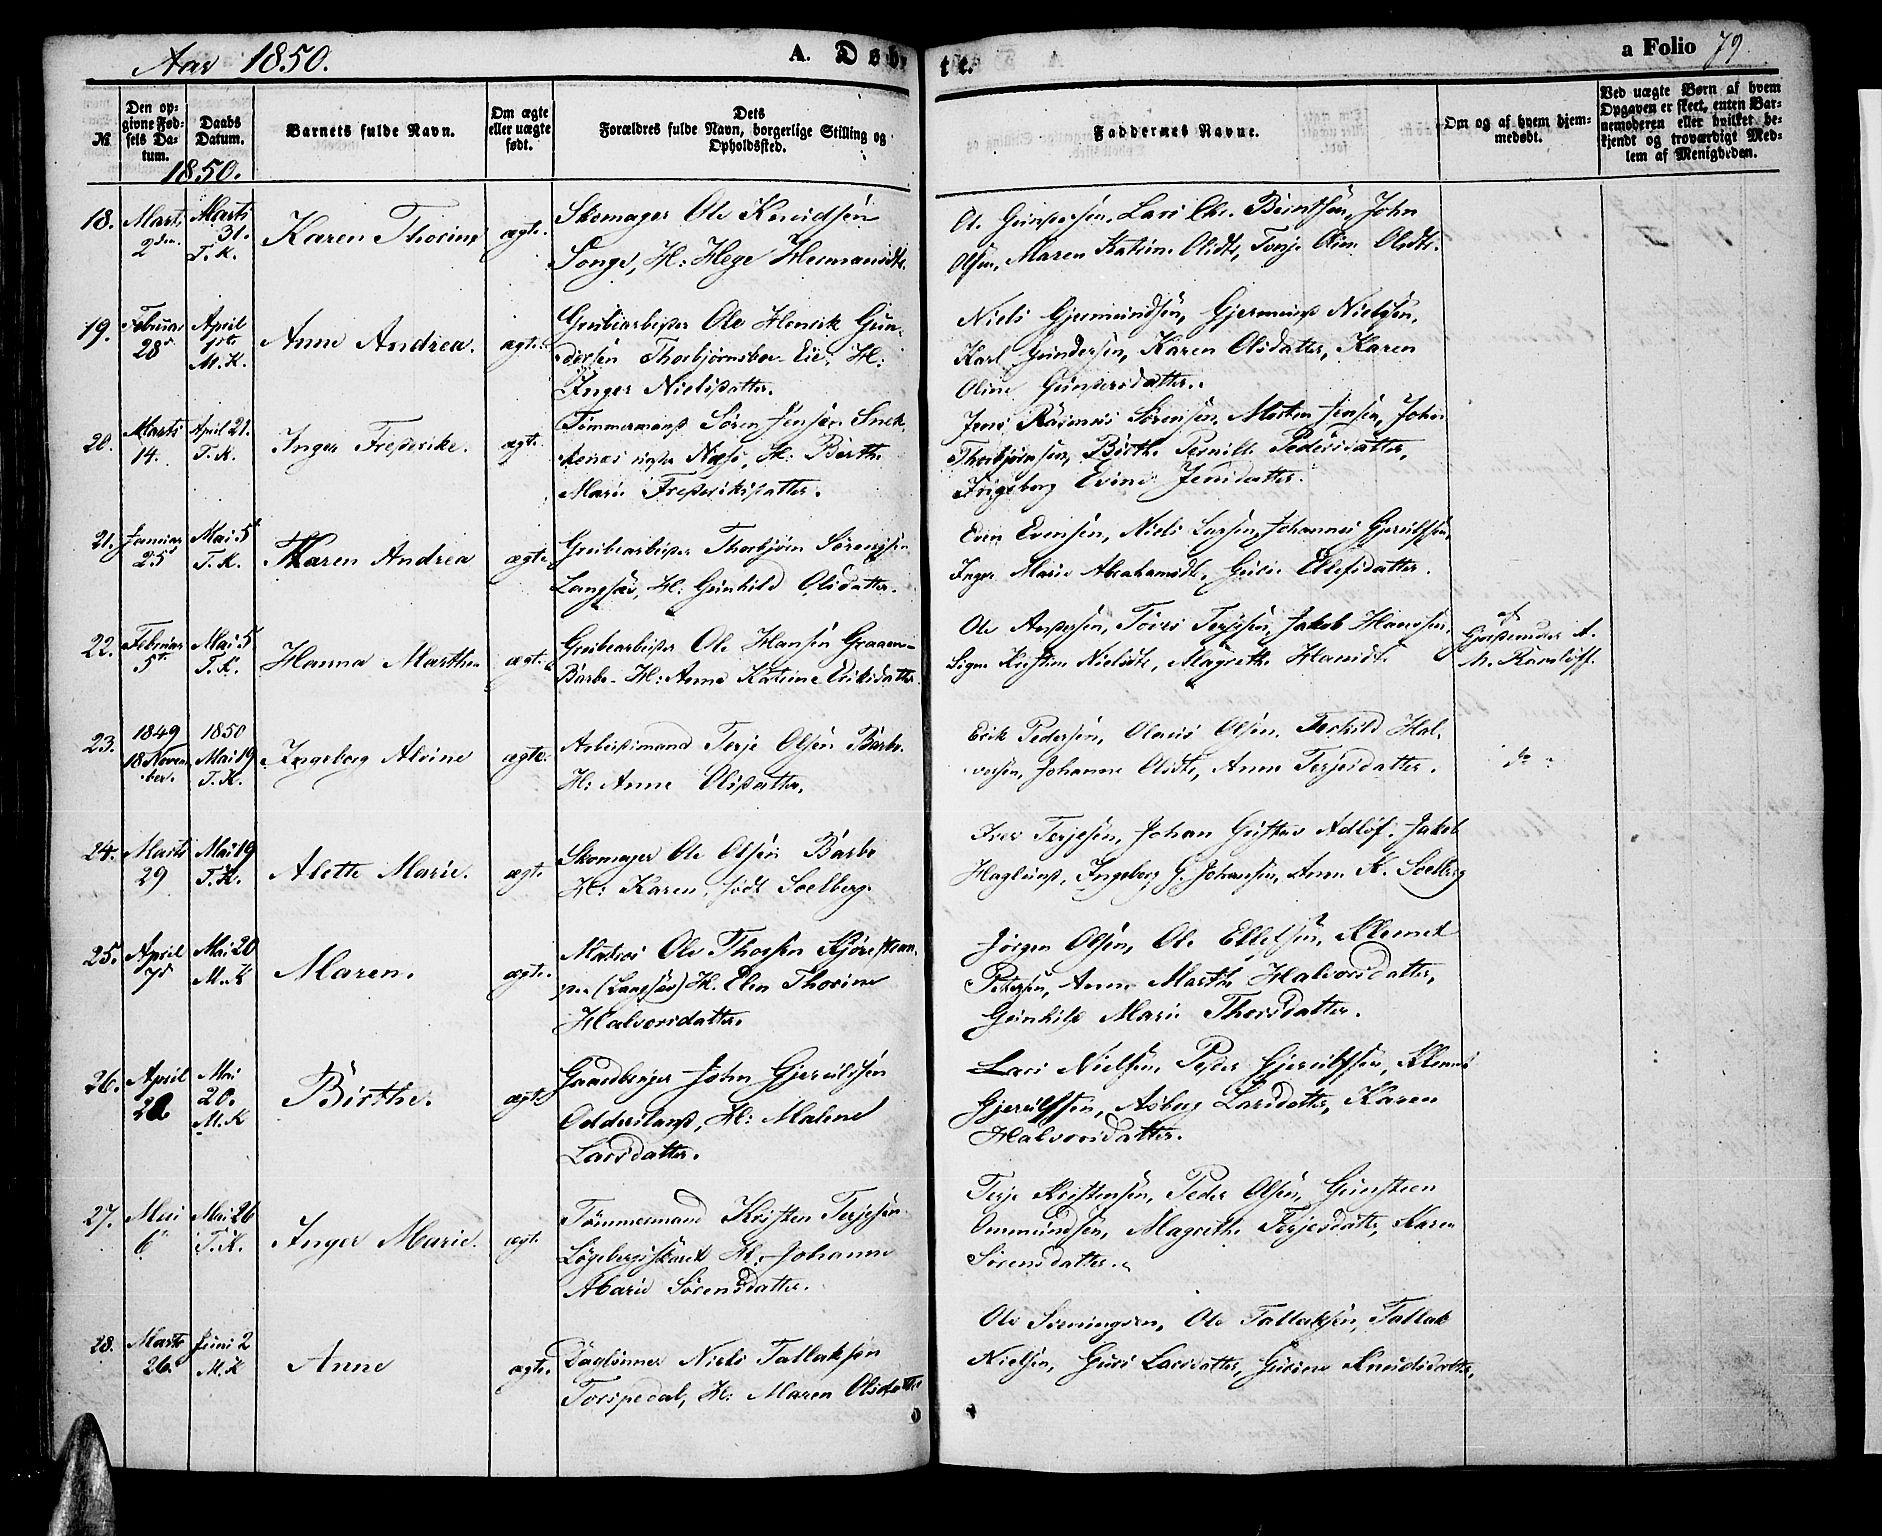 Aar 1850.
A. Døbte.
a Folio 79.
№
Den opgivne Fødsels Datum.
Daabs Datum.
Barnets fulde Navn.
Om ægte eller uægte født.
Dets Forældres fulde Navn, borgerlige Stilling og Opholdssted.
Faddernes Navne.
Om og af hvem hjemmedøbt.
Ved uægte Børn af hvem Opgaven er skeet, enten Barnemoderen eller hvilket bekjendt og troværdigt Medlem af Menigheden.
1850.
18. Marts 2den Marts 31. T. K. Karen Thorine ægte.
Skomager Ole Knudsen
Songe, H: Hege Hermansdtr.
O. Gundersen, Lars Chr. Berntsen, John
Olsen, Maren Katrine Olsdtr, Tonje Oline Olsdtr.
19. Februar 28de April 1ste M. K. Anne Andrea. ægte.
Grubearbeider Ole Henrik Gun-
dersen Thorbjørnsboe Eie, H:
Inger Nielsdatter.
Niels Gjermundsen, Gjermund Nielsen,
Karl Gundersen, Karen Olsdatter, Karen
Oline Gundersdatter.
20. Marts 14. April 21. T. K. Inger Frederike. ægte.
Tømmermand Søren Jensen Snek-
kenæs Næs, H: Birthe
Marie Frederiksdatter.
Jens Rasmus Sørensen, Morten Jensen, John
Thorbjørnsen, Birthe Pernille Pedersdatter,
Ingeborg Evine Jensdatter.
21. Januar 25d Mai 5t T. K. Karen Andrea ægte
Grubearbeider Thorbjørn Sørensen
Langsæv, H: Gunhild Olsdatter.
Even Evensen, Niels Larsen, Johannes Gjerulfsen,
Inger Marie Abrahamsdt., Gurie Ellefsdatter.
22. Februar 5t. Mai 5 T. K. Hanna Marthe ægte.
Grubearbeider Ole Hansen Graaen-
Barbo. H: Anne Katrine Eriksdatter.
Ole Andersen, Terjesen, Jakob Hansen,
Signe Kristine Nielsdtr, Magrethe Hansdt.
af
M. Ramløff.
23. 1849 18 November. 1850 Mai 19 T. K. Ingeborg Alvine ægte.
Arbeidsmand Terje Olsen Barbo.
H: Anne Olsdatter.
Erik Pedersen, Olaus Olsen, Terkild Hal-
vorsen, Johanne Olsdtr, Anne Terjesdatter.
do
24. Marts 29 Mai 19 T. K. Alette Marie. ægte.
Skomager Ole Olsen Barbo
H: Karen, født Soelberg.
Iver Terjesen, Johan Gustav Adlöf, Jakob
Haglund, Ingeborg G. Johansen, Anne K. Soelberg
25. April 7d Mai 20 M. K Maren. ægte.
Matros Ole Thorsen
(Langsæv) H. Elen Thorine
Halvorsdatter.
Jørgen Olsen, Ole Ellefsen, Klemet
Petersen, Anne Marthe Halvorsdatter,
Gunhild Marie Thorsdatter.
26. April 20. Mai 20. M. K Birthe. ægte
Gaardbruger John Gjerulfsen
Oddersland, H: Malene
Larsdatter.
Lars Nielsen, Peder Gjerulfsen, Klemet
Gjerulfsen, Asborg Larsdatter, Karen
Halvorsdatter.
27. Mai 6 Mai 26 T. K. Inger Marie. ægt.
Tømmermand Kristen Terjesen
Løgebergsskaret H: Johanne
Marie Sørensdatter.
Terje Kristensen, Peder Olsen, Gunsteen
Ommundsen, Magrethe Terjesdatter, Karen
Sørensdatter.
28. Marts 26. Juni 2 M. K Anne ægte.
Daglønner Niels Tallaksen
Torspedal, H: Maren Olsdatter
Ole Søreningsen, Ole Tallaksen, Tallak
Nielsen, Guri Larsdatter, Gurine Knudsdatter.